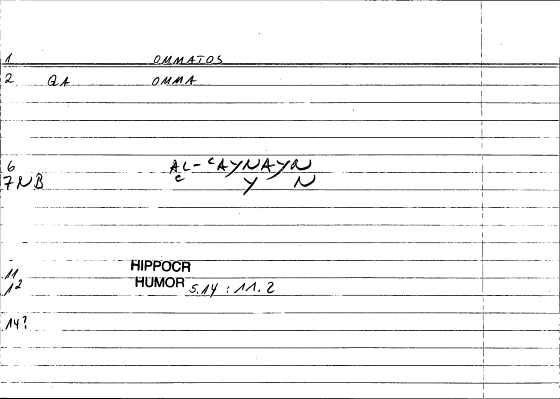 1 OMMATOS
2 QA OMMA
6 AL-CAYNAYN
7 NB C Y N
11 HIPPOCR
12 HUMOR 5.14 : 11.2
14?